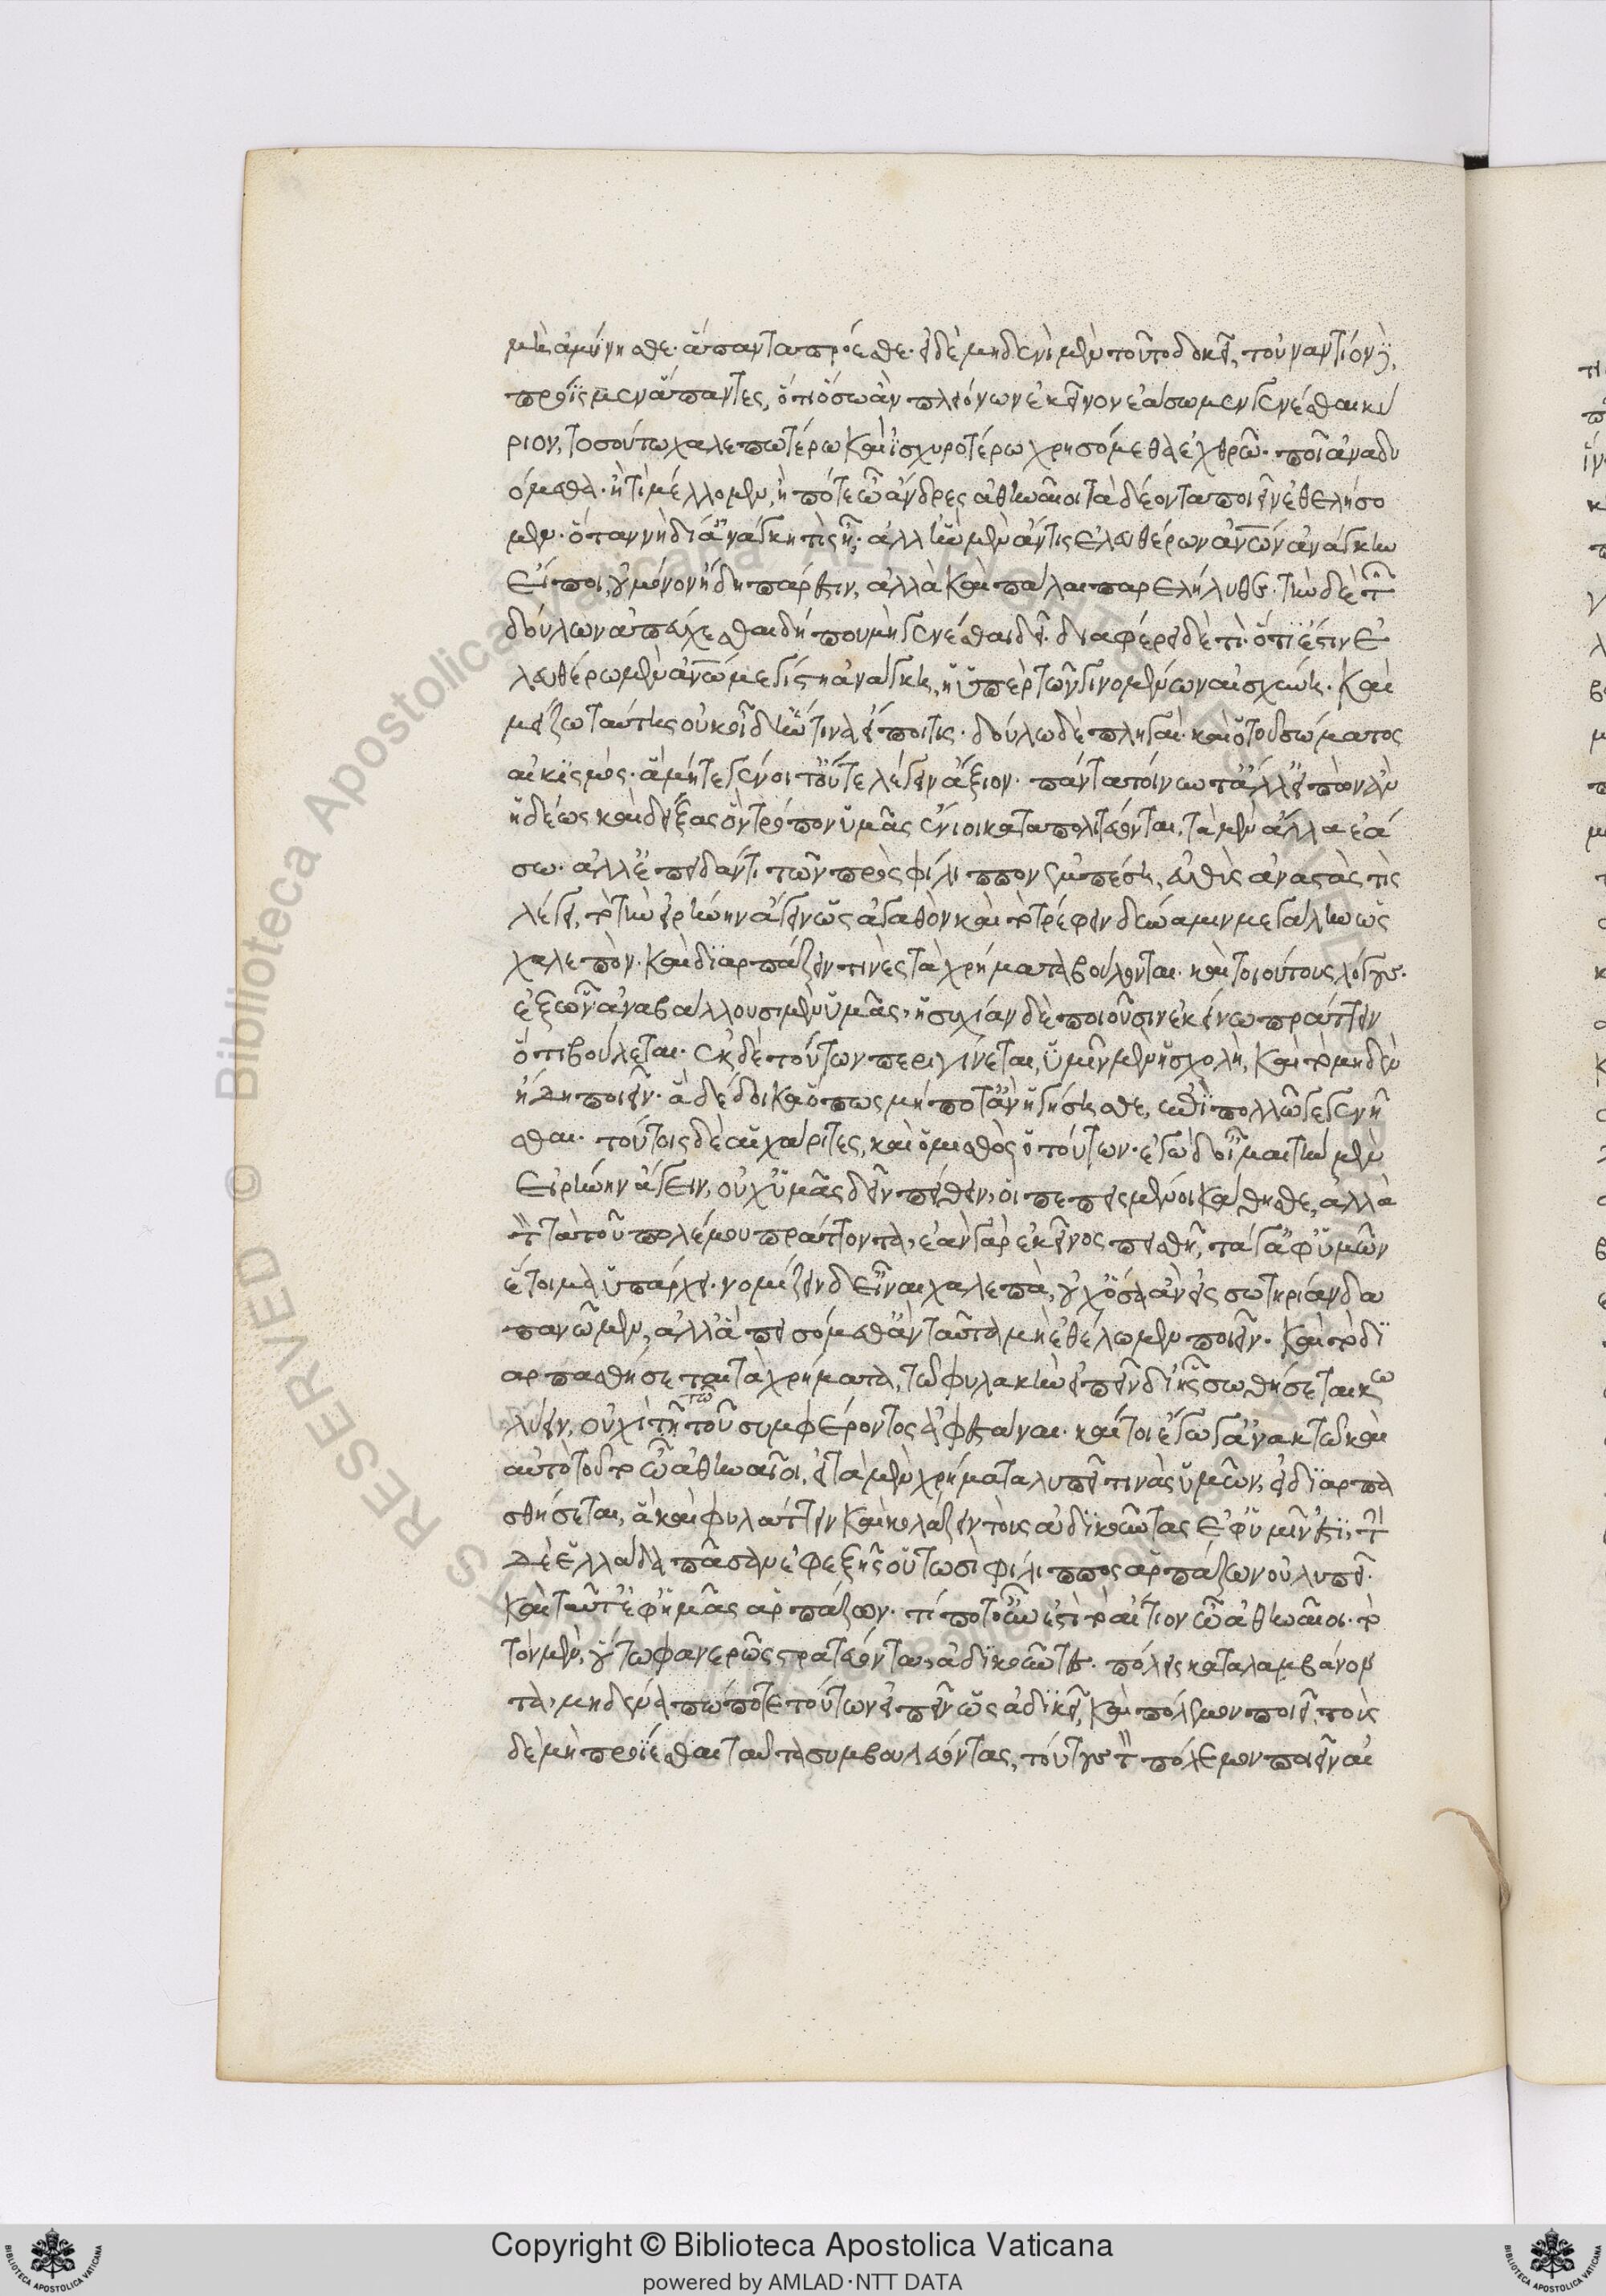 μὴ ἀμύνησθε· ἅπαντα πρόεσθε· εἰ δὲ μηδενὶ μὲν τοῦτο δοκεῖ, τοὐναντίον δὲ
πρόϊσμεν ἅπαντες, ὅτι ὅσῳ ἂν πλειόνων ἐκεῖνον ἐάσωμεν γενέσθαι κύ
ριον, τοσούτῳ χαλεπωτέρῳ καὶ ἰσχυροτέρῳ χρησόμεθα ἐχθρῷ· ποῖ ἀναδυ
όμεθα· ἢ τί μέλλομεν, ἢ πότε ὦ ἄνδρες ἀθηναῖοι τὰ δέοντα ποιεῖν ἐθελήσο
μεν· ὅταν νὴ δί᾽ ἀνάγκη τίς ᾖ· ἀλλ᾽ ἣν μὲν ἄν τις ἐλευθέρων ἀνθρώπων ἀνάγκην
εἴποι, οὐ μόνον ἤδη πάρεστιν, ἀλλὰ καὶ πάλαι παρελήλυθεν· τὴν δὲ τῶν
δούλων ἀπεύχεσθαι δήπου μὴ γενέσθαι δεῖ· διαφέρει δὲ τί· ὅτι ἐστὶν ἐ
λευθέρῳ μὲν ἀνθρώπῳ μεγίστη ἀνάγκη, ἡ ὑπὲρ τῶν γινομένων αἰσχύνη· καὶ
μείζω ταύτης οὐκ οἶδ᾽ ἥντινα εἴποι τις· δούλῳ δὲ πληγαὶ· καὶ ὁ τοῦ σώματος
αἰκισμός· ἃ μήτε γένοιτο οὔτε λέγειν ἄξιον· πάντα τοίνυν τἄλλ᾽ εἰπὼν ἂν
ἡδέως καὶ δείξας ὃν τρόπον ὑμᾶς ἔνιοι καταπολιτεύονται, τὰ μὲν ἄλλα ἐά
σω· ἀλλ᾽ ἐπειδάν τι τῶν πρὸς φίλιππον ἐμπέσῃ, εὐθὺς ἀναστὰς τὶς
λέγει, τὸ τὴν εἰρήνην ἄγειν ὡς ἀγαθὸν καὶ τὸ τρέφειν δύναμιν μεγάλην ὡς
χαλεπὸν· καὶ διαρπάζειν τινὲς τὰ χρήματα βούλονται· καὶ τοιούτους λόγους·
ἐξ ὧν ἀναβάλλουσι μὲν ὑμᾶς, ἡσυχίαν δὲ ποιοῦσιν ἐκείνῳ πράττειν
ὅ τι βούλεται· ἐκ δὲ τούτων περιγίνεται, ὑμῖν μὲν ἡ σχολὴ, καὶ τὸ μηδὲν
ἤδη ποιεῖν· ἃ δέδοικα ὅπως μήποτ᾽ ἂν ἡγήσησθε, ἐπὶ πολλῷ γεγενῆ
σθαι· τούτοις δὲ αἱ χάριτες, καὶ ὁ μισθὸς ὁ τούτων· ἐγὼ δ᾽ οἶμαι τὴν μὲν
εἰρήνην ἄγειν, οὐχ ὑμᾶς δεῖν πείθειν, οἳ πεπεισμένοι κάθησθε, ἀλλὰ
τὸν τὰ τοῦ πολέμου πράττοντα, ἐὰν γὰρ ἐκεῖνος πεισθῇ, τά γ᾽ ἀφ᾽ ὑμῶν
ἕτοιμα ὑπάρχει· νομίζειν δ᾽ εἶναι χαλεπὰ, οὐχ ὅσα ἂν εἰς σωτηρίαν δα
πανῶμεν, ἀλλ᾽ ἃ πεισόμεθ᾽ ἂν ταῦτα μὴ ἐθέλωμεν ποιεῖν· καὶ τὸ δι
αρπασθήσεται τὰ χρήματα, τῷ φυλακὴν εἰπεῖν δι᾽ ἧς σωθήσεται κω
λύειν, οὐχὶ τῷ τοῦ συμφέροντος ἀφεστάναι· καίτοι ἔγωγ᾽ ἀγανακτῶ καὶ
αὐτὸ τοῦτο ὦ ἀθηναῖοι, εἰ τὰ μὲν χρήματα λυπεῖ τινὰς ὑμῶν, εἰ διαρπα
σθήσεται, ἃ καὶ φυλάττειν καὶ κολάζειν τοὺς ἀδικοῦντας ἐφ᾽ ὑμῖν ἐστι, τὴν
δὲ ἑλλάδα πᾶσαν ἐφεξῆς οὑτωσὶ φίλιππος ἁρπάζων οὐ λυπεῖ·
καὶ ταῦτ᾽ ἐφ᾽ ἡμᾶς ἁρπάζων· τί ποτ᾽ οὖν ἐστὶ τὸ αἴτιον ὦ ἀθηναῖοι· τὸ
τὸν μὲν, οὕτω φανερῶς στρατεύοντα, ἀδικοῦντα· πόλεις καταλαμβάνον
τα, μηδένα πώποτε τούτων εἰπεῖν ὡς ἀδικεῖ, καὶ πόλεμον ποιεῖ, τοὺς
δὲ μὴ προΐεσθαι ταῦτα συμβουλεύοντας, τούτους τὸν πόλεμον ποιεῖν αἰ
Copyright © Biblioteca Apostolica Vaticana
powered by AMLAD·NTT DATA